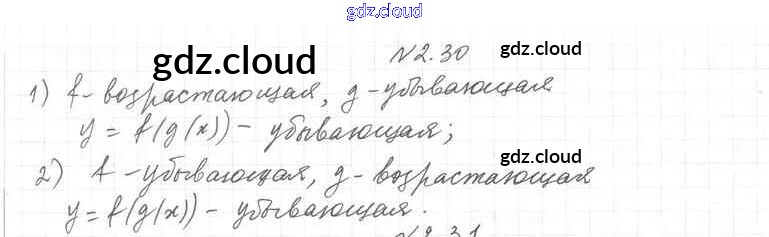 gdz.cloud
№2.30 gdz.cloud
gdz.cloud
1) f - возрастающая, g - убывающая
y = f(g(x)) - убывающая;
gdz.cloud
2) f - убывающая, g - возрастающая
y = f(g(x)) - убывающая.
№2.31